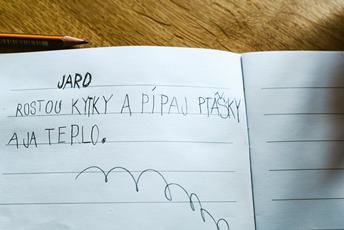 JARO
ROSTOU KYTKY A PÍPAJ PTÁŠKY
A JA TEPLO.